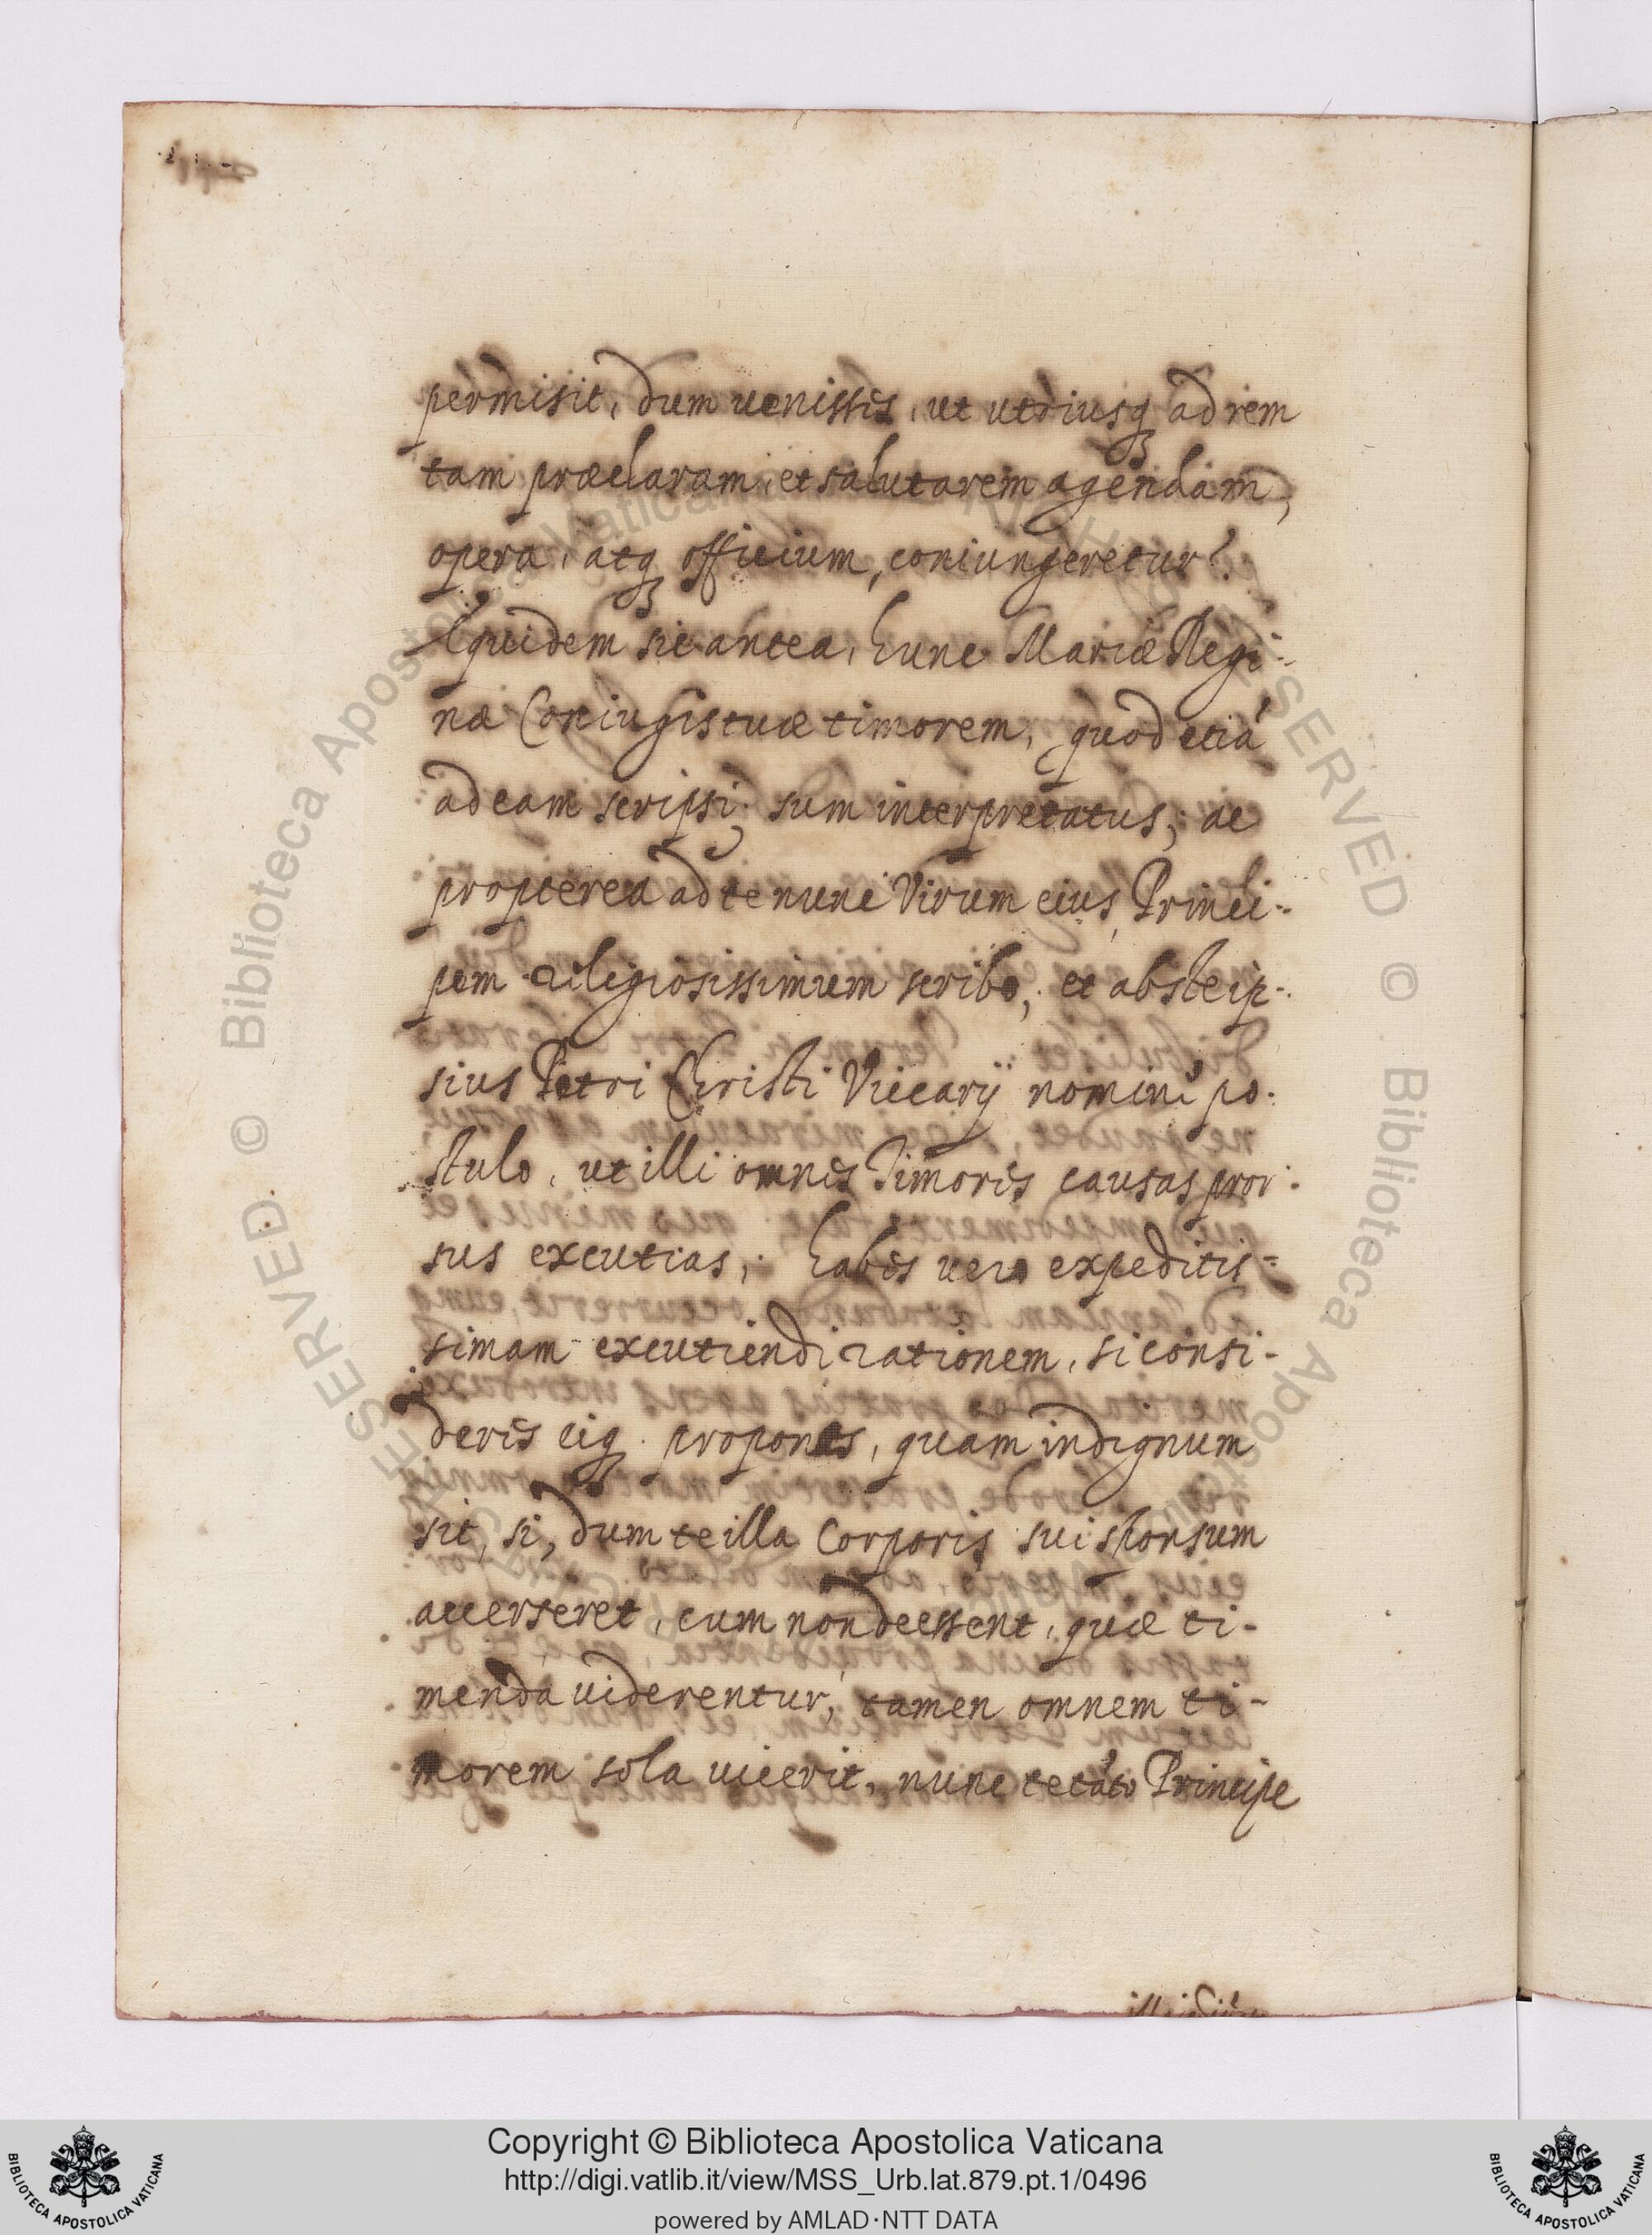 permisit, dum uenissés, ut utriusq; ad rem
tam præclaram, et salutarem agendam,
opera, atq; officium, coniungeretur?
Equidem sic antea, hunc Mariæ Regi-
næ Coniugis tuæ timorem, quod etiã
ad eam scripsi, sum interpretatus; ac
propterea ad te nunc Virum eius, Princi-
pem religiosissimum scribo, et abs te ip-
sius Petri Christi Vicarij nomine po-
stulo, ut illi omnes Timoris causas pror-
sus excutias; habes uero expeditis-
simam excutiendi rationem, si consi-
deres eiq. propones, quam indignum
sit, si, dum te illa Corporis sui sponsum
accerseret, cum non deessent, quæ ti-
menda uiderentur, tamen omnem ti-
morem sola uicerit, nunc te tãto Principe
© Biblioteca Apostolica Vaticana
Copyright © Biblioteca Apostolica Vaticana
http://digi.vatlib.it/view/MSS_Urb.lat.879.pt.1/0496
powered by AMLAD·NTT DATA
BIBLIOTECA APOSTOLICA VATICANA
BIBLIOTECA APOSTOLICA VATICANA